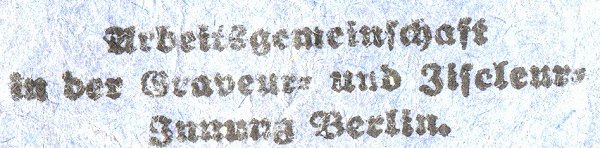 Arbeitsgemeinschaft
in der Graveur- und Ziseleur-
Innung Berlin.